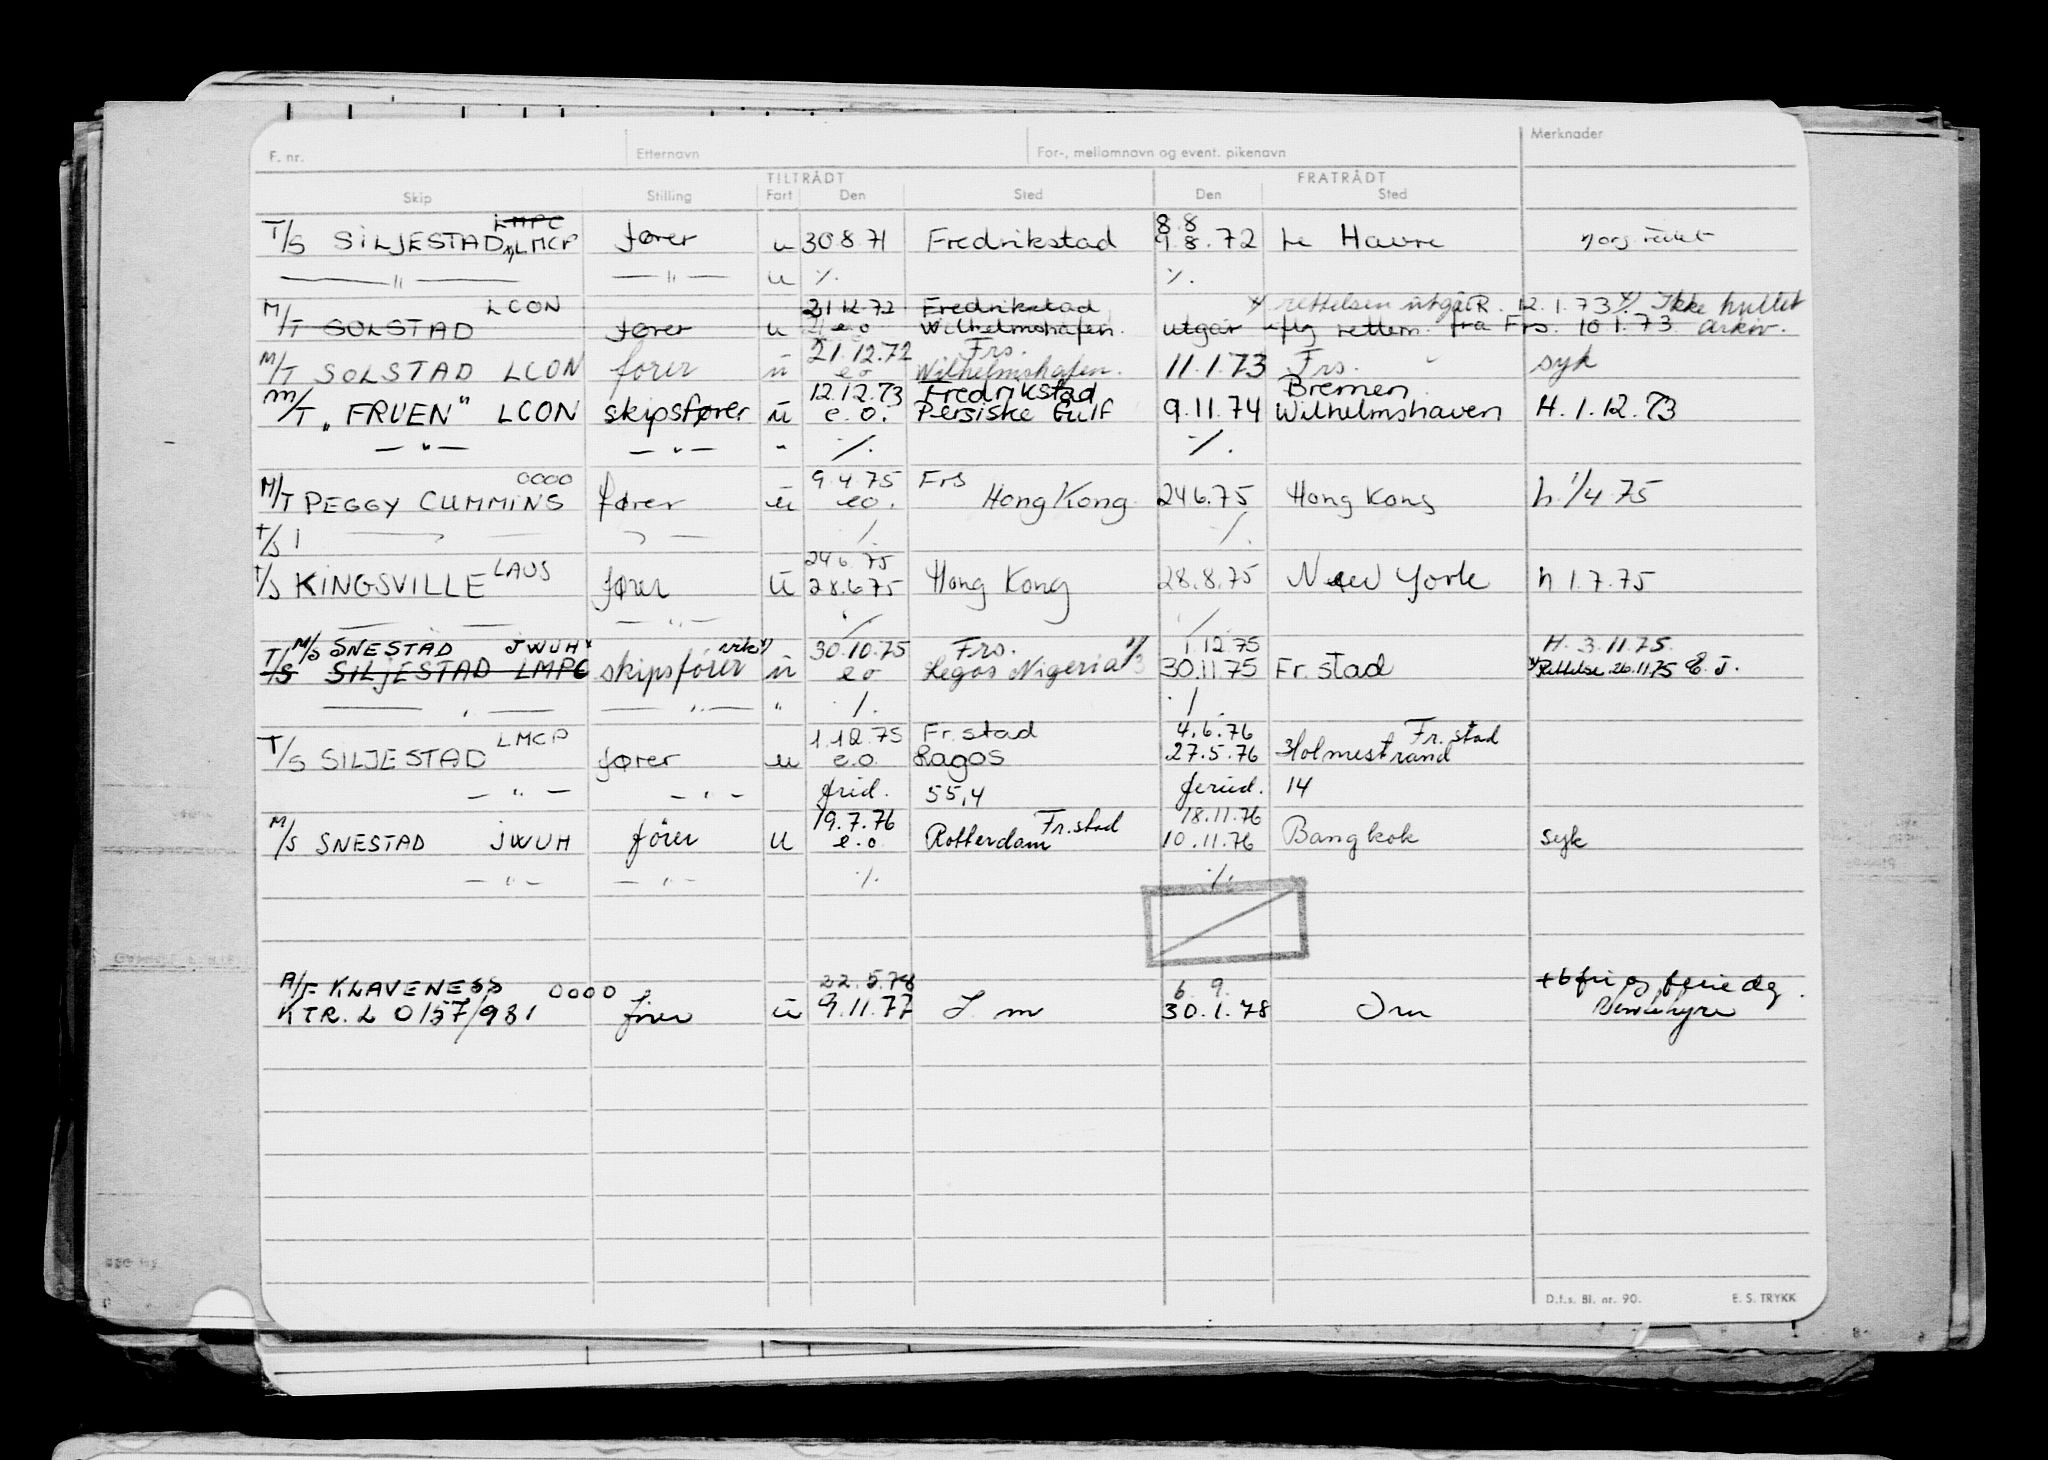 F. nr. Etternavn For-, mellomnavn og event. pikenavn Merknader
TILTRÅDT FRATRÅDT
Skip Stilling Fart Den Sted Den Sted
LMPC 8.8
T/S SILJESTAD LMCP fører u 30.8.71 Fredrikstad 9.8.72 Le Havre
— " — — " — u ./. ./.
LCON 21.12.72 Fredrikstad rettelsen utgår. 12.1.73 Ikke hullet
M/T SOLSTAD fører u e.o Wilhelmshafen. utgår iflg rettem. fra Frs. 10 1.73 arkiv.
21.12.72 Frs.
M/T SOLSTAD LCON fører u eo Wilhelmshafen. 11.1.73 Frs. syk
12.12.73 Fredrikstad Bremen
M/T "FRUEN" LCON skipsfører u e.o. Persiske Gulf 9.11.74 Wilhelmshaven H. 1.12.73
— " — — " — " ./. ./.
0000 9.4.75 Frs
M/T PEGGY CUMMINS fører u eo. Hong Kong 24 6.75 Hong Kong h. 1/4 75
./. ./.
LAUS 24 6.75
T/S KINGSVILLE fører u 28.6.75 Hong Kong 28.8.75 New York h 1.7.75
— — — " — ./. ./.
M/S SNESTAD JWUH 30.10.75 Frs. 1.12.75 H. 3.11.75.
T/S SILJESTAD LMPC skipsfører u eo Legos Nigeria 30.11.75 Fr.stad Rettelse 26.11.75 E. J.
— " — — " — " ./. ./.
LMCP 1.12.75 Fr.stad 4.6.76 Fr.stad
T/S SILJESTAD fører u e.o. Lagos 27.5.76 Holmestrand
— " — — " — frid. 55,4 feried. 14
19.7.76 Fr.stad 18.11.76
M/S SNESTAD JWUH fører u e.o Rotterdam 10.11.76 Bangkok syk
— " — — " — ./. ./.
A/F KLAVENESS 0000 22.5.78 6. 9. + 6 fri og feriedg.
KTR. L 0/57/981 fører u 9.11.77 30.1.78
D.f.s. Bl. nr. 90. E. S. TRYKK